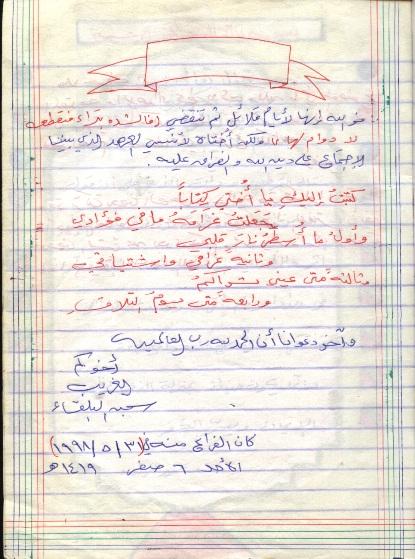 فوالله إنها لأيام قلائل ثم تنقضي أما الشدة بتراء فتنقطع
لا دوام لها ولكن أختاه لا تنسي العهد الذي بيننا
الاجتماع على دين الله والفراق عليه
كتبتُ إليكِ يا أختي كتاباً
جعلتُ غرامهُ ما في فؤادي
وأولُ ما أسطرُ نار قلبي
وثانيه غرامي واشتياقي
وثالثه متى عيني تراكم
ورابعه متى يوم التلاق
وآخر دعوانا أن الحمد لله رب العالمين
أخوكم
الغريب
سجن البلقاء
كان الفراغ منه في (٣١/٥/١٩٩٨)
الأحد ٦ صفر ١٤١٩هـ